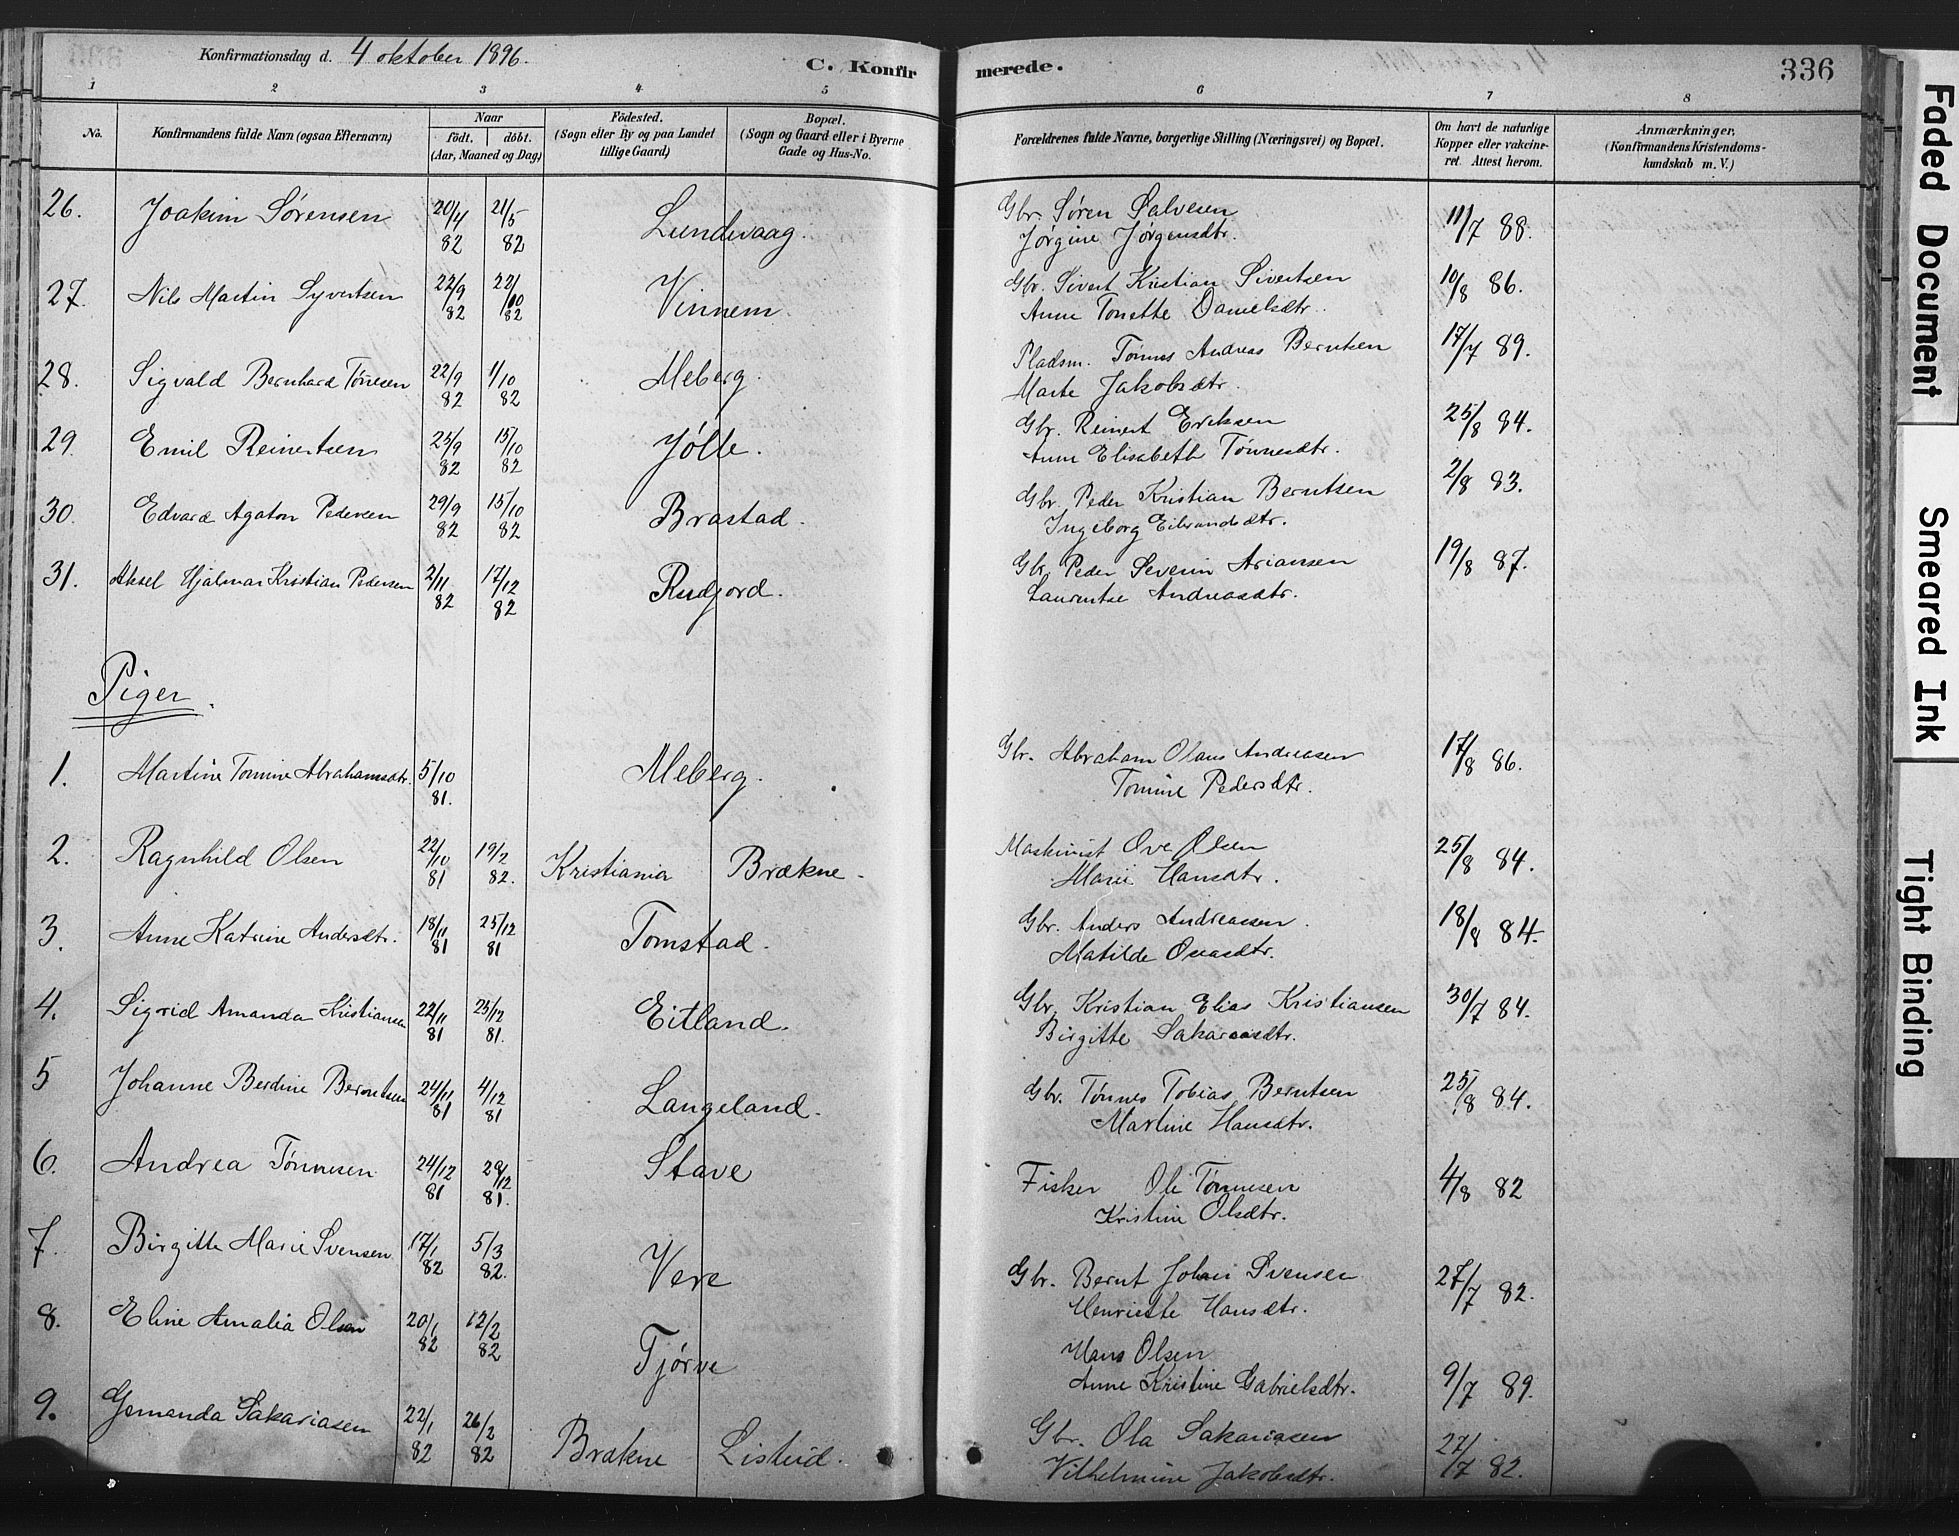 Konfirmationsdag d. 4 oktober 1896.
C. Konfirmerede.
336
1 2 3 4 5 6 7 8
No.
Konfirmandens fulde Navn (ogsaa Efternavn)
Naar
født. døbt.
(Aar, Maaned og Dag)
Fødested.
(Sogn eller By og paa Landet
tillige Gaard)
Bopæl.
(Sogn og Gaard eller i Byerne
Gade og Hus-No.
Forældrenes fulde Navne, borgerlige Stilling (Næringsvei) og Bopæl.
Om havt de naturlige
Kopper eller vakcine-
ret. Attest herom.
Anmærkninger,
(Konfirmandens Kristendoms-
kundskab m. V.)
26. Joakim Sørensen 20/4 82 21/5 82 Lundevaag. Gbr. Søren Salvesen 11/7 88.
Jørgine Jørgensdtr.
27. Nils Martin Syvertsen 22/9 82 22/10 82 Vinnem. Gbr. Sivert Kristian Sivertsen 10/8 86.
Anne Tonette Danielsdtr.
28. Sigvald Bernhard Tönesen 22/9 82 1/10 82 Meberg. Pladsm. Tønnes Andreas Berntsen 17/7 89.
Marte Jakobsdtr.
29. Emil Reinertsen 25/9 82 15/10 82 Jølle. Gbr. Reinert Eriksen 25/8 84.
Anne Elisabeth Tønnesdtr.
30. Edvard Agaton Pedersen 29/9 82 15/10 82 Brastad. Gbr. Peder Kristian Berntsen 2/8 83.
Ingeborg Eilevandsdtr.
31. Aksel Hjalmar Kristian Pedersen 2/11 82 17/12 82 Rudjord. Gbr. Peder Severin Ariansen 19/8 87.
Laurentse Andreasdtr.
Piger.
1. Martine Tomine Abrahamsdtr. 5/10 81. Meberg. Gbr. Abraham Olaus Andreasen 17/8 86.
Tomine Pedersdtr.
2. Ragnhild Olsen 22/10 81 19/2 82. Kristiania Brækne. Maskinist Ove Olsen 25/8 84.
Marie Hansdtr.
3. Anne Katrine Andersdtr. 18/11 81 25/12 81 Tomstad. Gbr. Anders Andreassen. 18/8 84.
Matilde Ovasdtr.
4. Sigrid Amanda Kristiansen 22/11 81 25/12 81. Eitland. Gbr. Kristian Elias Kristiansen 30/7 84.
Birgitte Sakariasdtr.
5 Johanne Berdine Berntsen 24/11 81 4/12 81 Langeland. Gbr. Tønnes Tobias Berntsen 25/8 84.
Martine Hansdtr.
6. Andrea Tönnesen 24/12 81 29/12 81. Stave Fisker Ole Tönnesen 4/8 82
Kristine Olsdtr.
7. Birgitte Marie Svensen 17/1 82 5/3 82. Vere Gbr. Bernt Johan Svensen 27/7 82.
Henriette Hansdtr.
8. Eline Amalia Olsen 20/1 82 12/2 82 Tjørve Hans Olsen 9/7 89.
Anne Kristine Gabrielsdtr.
9. Gemanda Sakariasen 22/1 82 26/2 82 Brækne Listeid. Gbr. Ola Sakariasen 27/7 82.
Vilhelmine Jakobsdtr.
Faded Document
Smeared Ink
Tight Binding